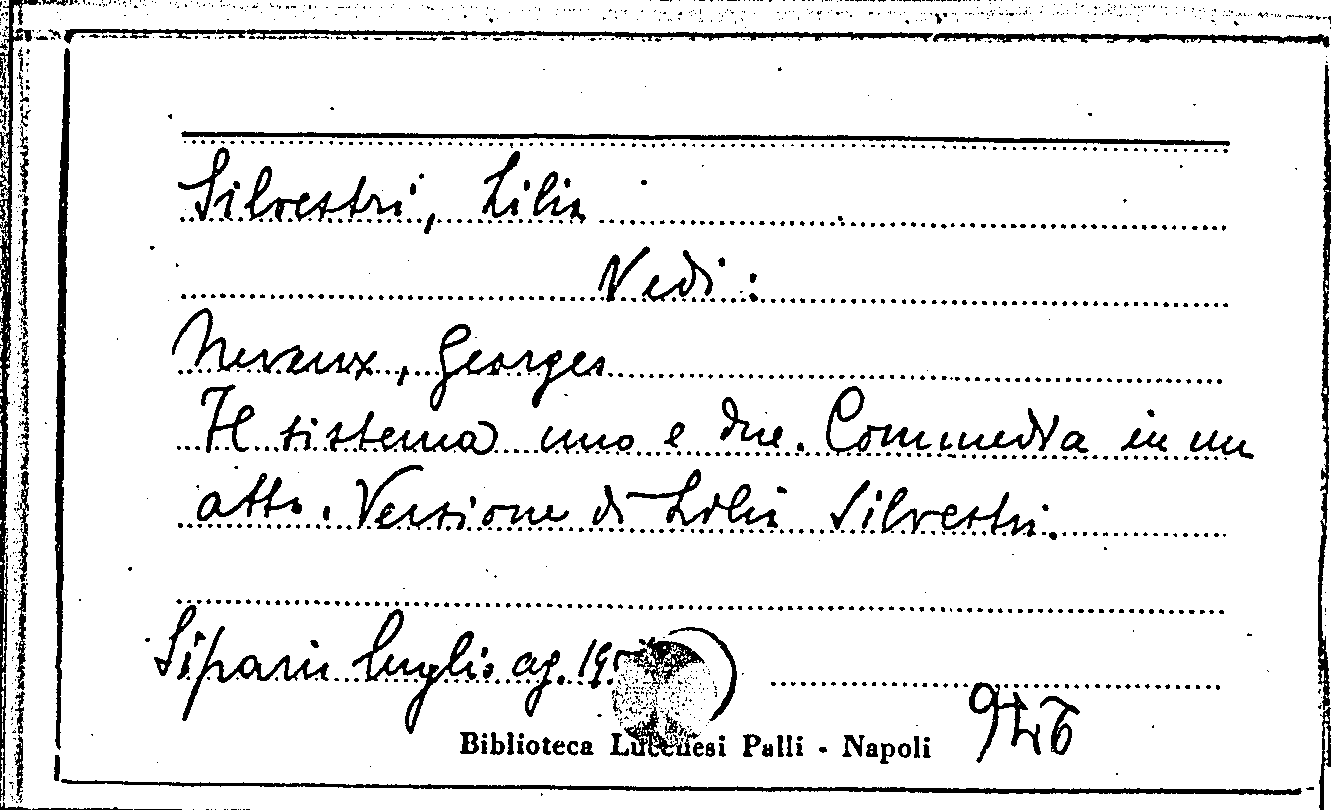 Silvestri, Lilia
Vedi:
Neveux, Georges
Il sistema uno e due. Commedia in un
atto. Versione di Lilia Silvestri.
Sipario luglio ag. 19
Biblioteca Lucchesi Palli - Napoli